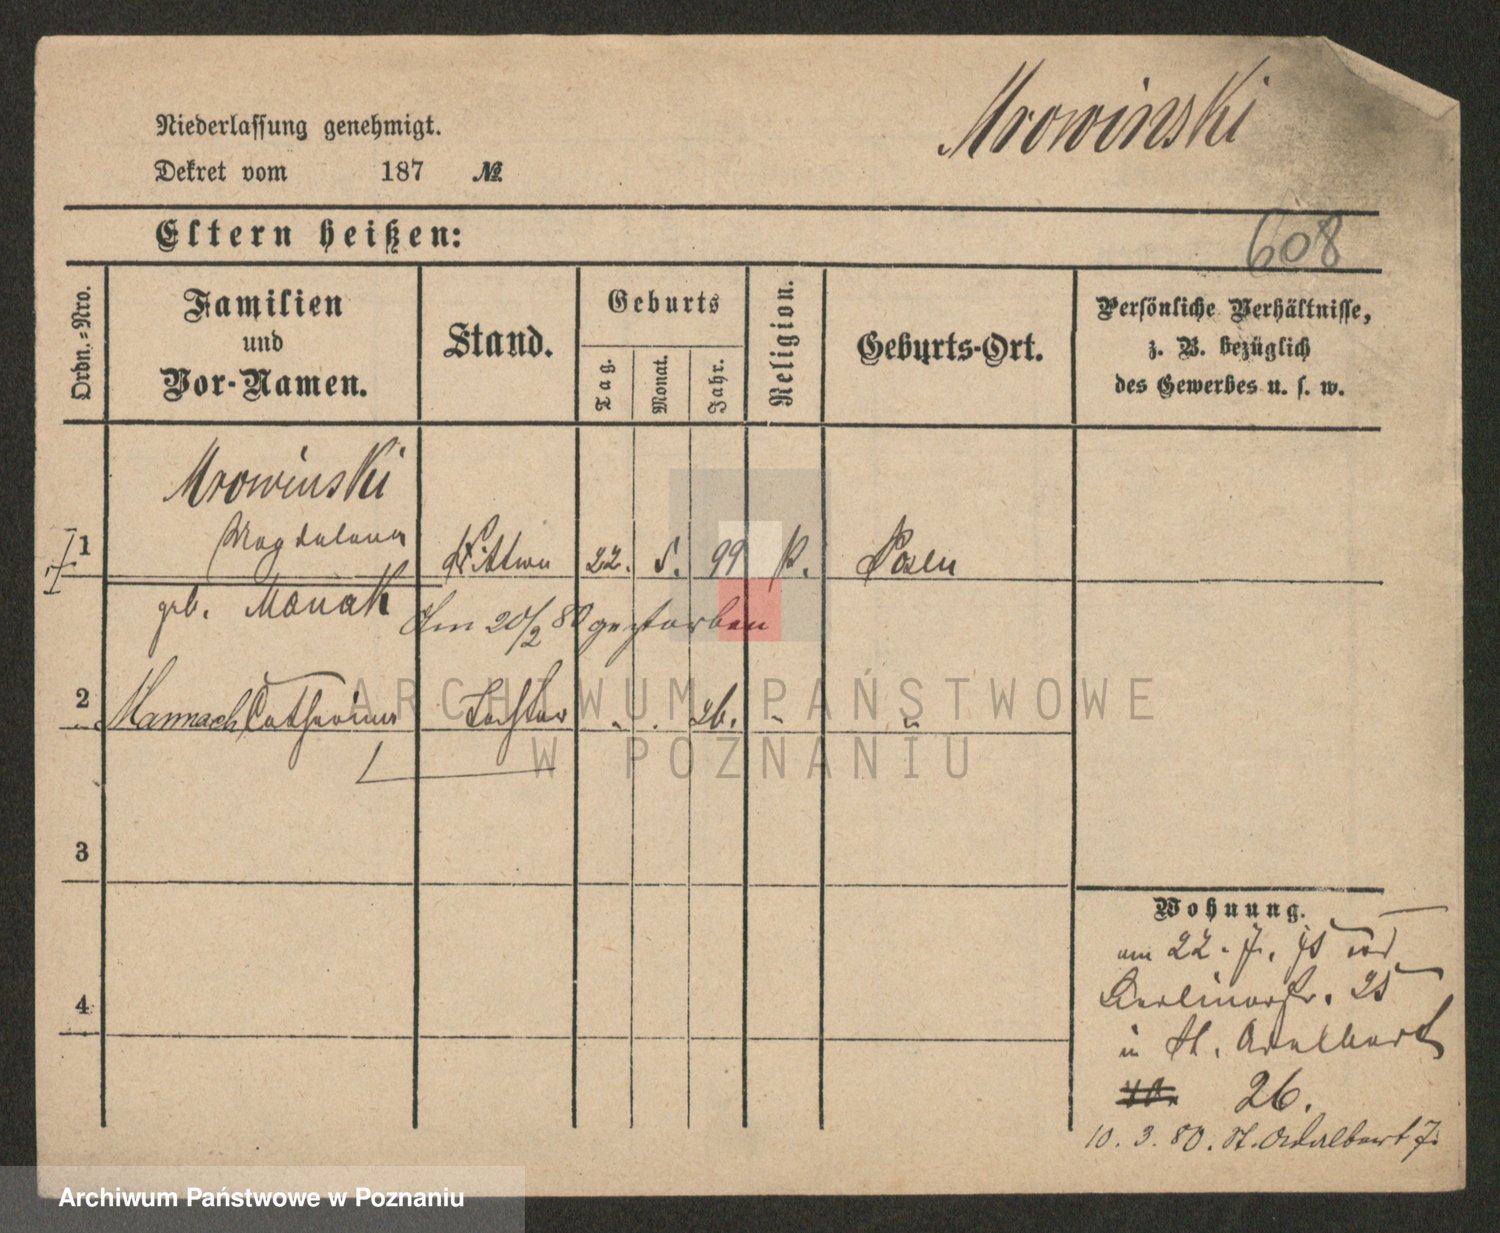 Mrowinski
Niederlassung genehmigt.
Dekret vom 187 №
608
Eltern heißen:
Ordn.-Nro.
Familien
und
Vor-Namen.
Stand.
Geburts
Tag.
Monat.
Jahr.
Religion.
Geburts-Ort.
Persönliche Verhältnisse,
z. B. bezüglich
des Gewerbes u. s. w.
Mrowinski
1 Magdalena Wittwe 22. 5. 99 k. Posen
geb. Manak
Am 20/2 80 gestorben
2 Mannach Catharina Tochter 26.
3
4
Wohnung.
am 22. 7. 75 von
Berlinerstr. 25
in St. Adalbert
26.
10. 3. 80. St. Adalbert 7.
ARCHIWUM PAŃSTWOWE
W POZNANIU
Archiwum Państwowe w Poznaniu